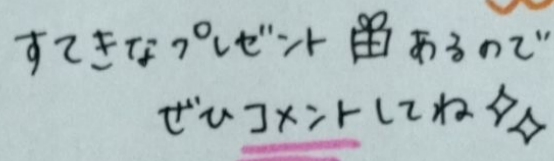 すてきなプレゼントあるので
ぜひコメントしてね